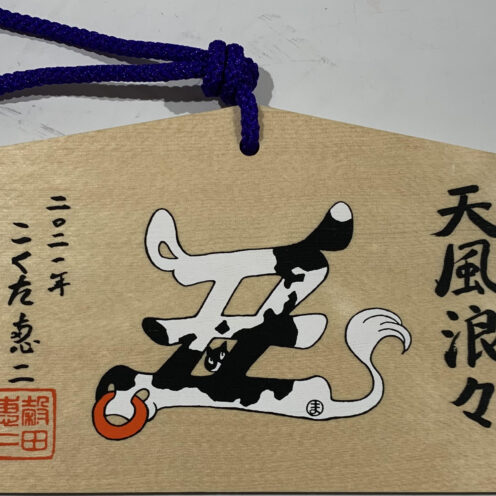 天風浪々
丑
ま
二〇二一年
こくた恵二
穀田
恵二